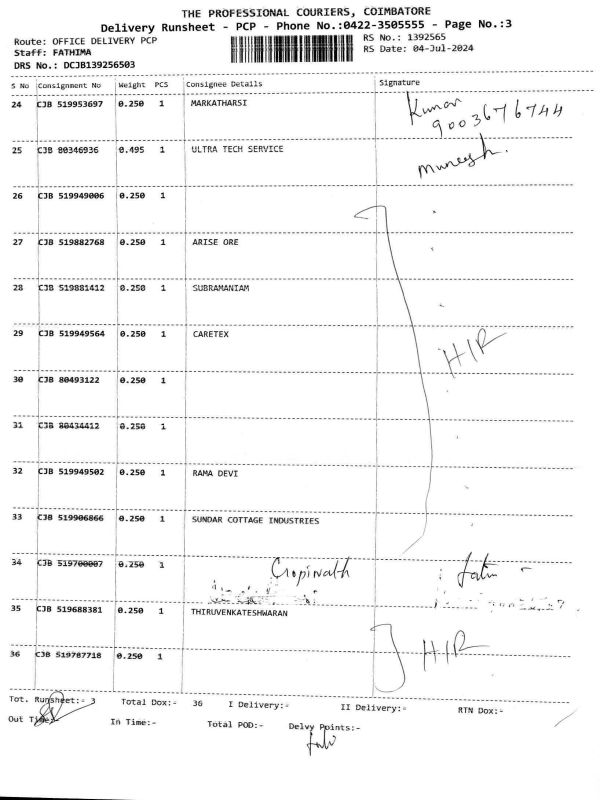 THE PROFESSIONAL COURIERS, COIMBATORE
Delivery Runsheet - PCP - Phone No.:0422-3505555 - Page No.:3
Route: OFFICE DELIVERY PCP RS No.: 1392565
Staff: FATHIMA RS Date: 04-Jul-2024
DRS No.: DCJB139256503
S No Consignment No Weight PCS Consignee Details Signature
24 CJB 519953697 0.250 1 MARKATHARSI Kumar
9003676744
25 CJB 80346936 0.495 1 ULTRA TECH SERVICE Muneesh.
26 CJB 519949006 0.250 1
27 CJB 519882768 0.250 1 ARISE ORE
28 CJB 519881412 0.250 1 SUBRAMANIAM
29 CJB 519949564 0.250 1 CARETEX H/R
30 CJB 80493122 0.250 1
31 CJB 80434412 0.250 1
32 CJB 519949502 0.250 1 RAMA DEVI
33 CJB 519906866 0.250 1 SUNDAR COTTAGE INDUSTRIES
34 CJB 519700007 0.250 1 Gopinath
35 CJB 519688381 0.250 1 THIRUVENKATESHWARAN
36 CJB 519787718 0.250 1 H/R
Tot. Runsheet:- 3 Total Dox:- 36 I Delivery:- II Delivery:- RTN Dox:-
Out Time:- In Time:- Total POD:- Delvy Points:-